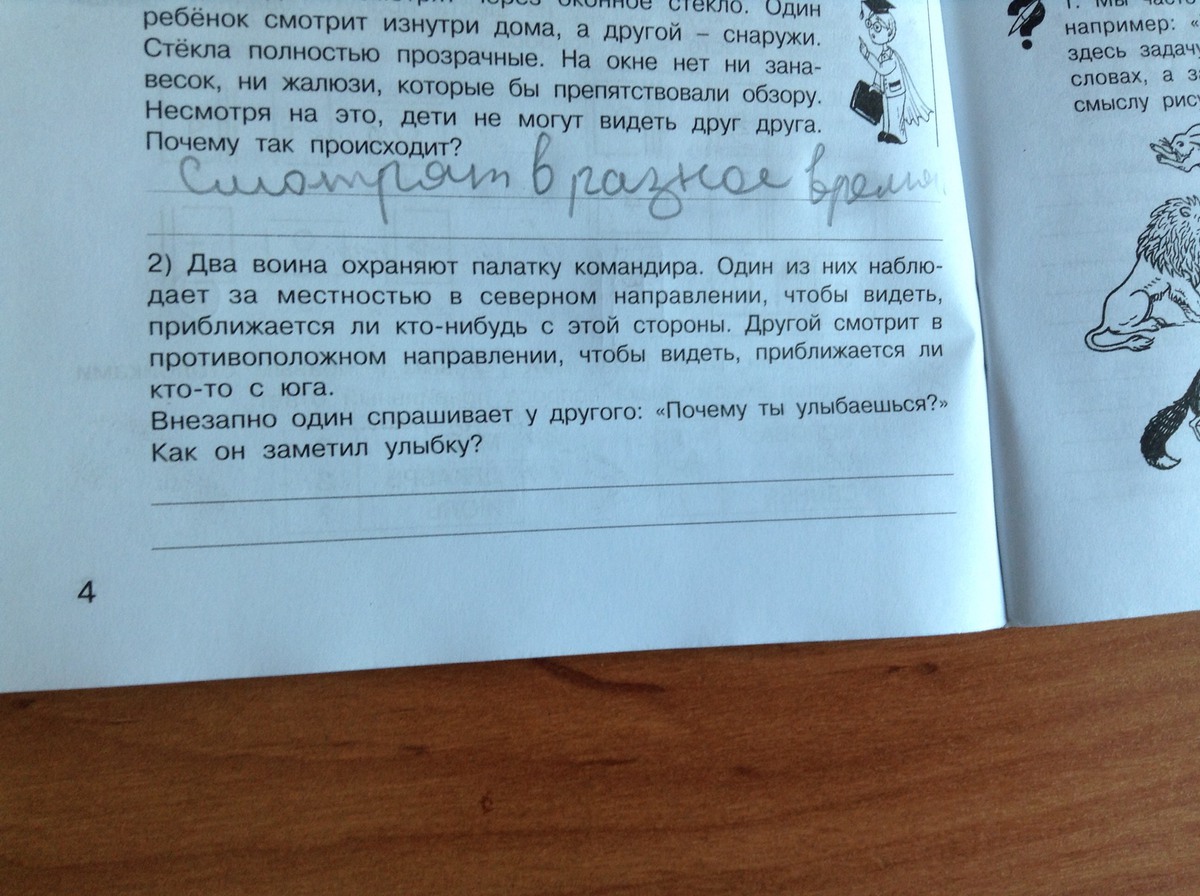 через оконное стекло. Один
ребёнок смотрит изнутри дома, а другой – снаружи.
Стёкла полностью прозрачные. На окне нет ни зана-
весок, ни жалюзи, которые бы препятствовали обзору.
Несмотря на это, дети не могут видеть друг друга.
Почему так происходит?
Смотрят в разное время.
2) Два воина охраняют палатку командира. Один из них наблю-
дает за местностью в северном направлении, чтобы видеть,
приближается ли кто-нибудь с этой стороны. Другой смотрит в
противоположном направлении, чтобы видеть, приближается ли
кто-то с юга.
Внезапно один спрашивает у другого: «Почему ты улыбаешься?»
Как он заметил улыбку?
4
1. Мы часто
например: «
здесь задачу
словах, а
смыслу